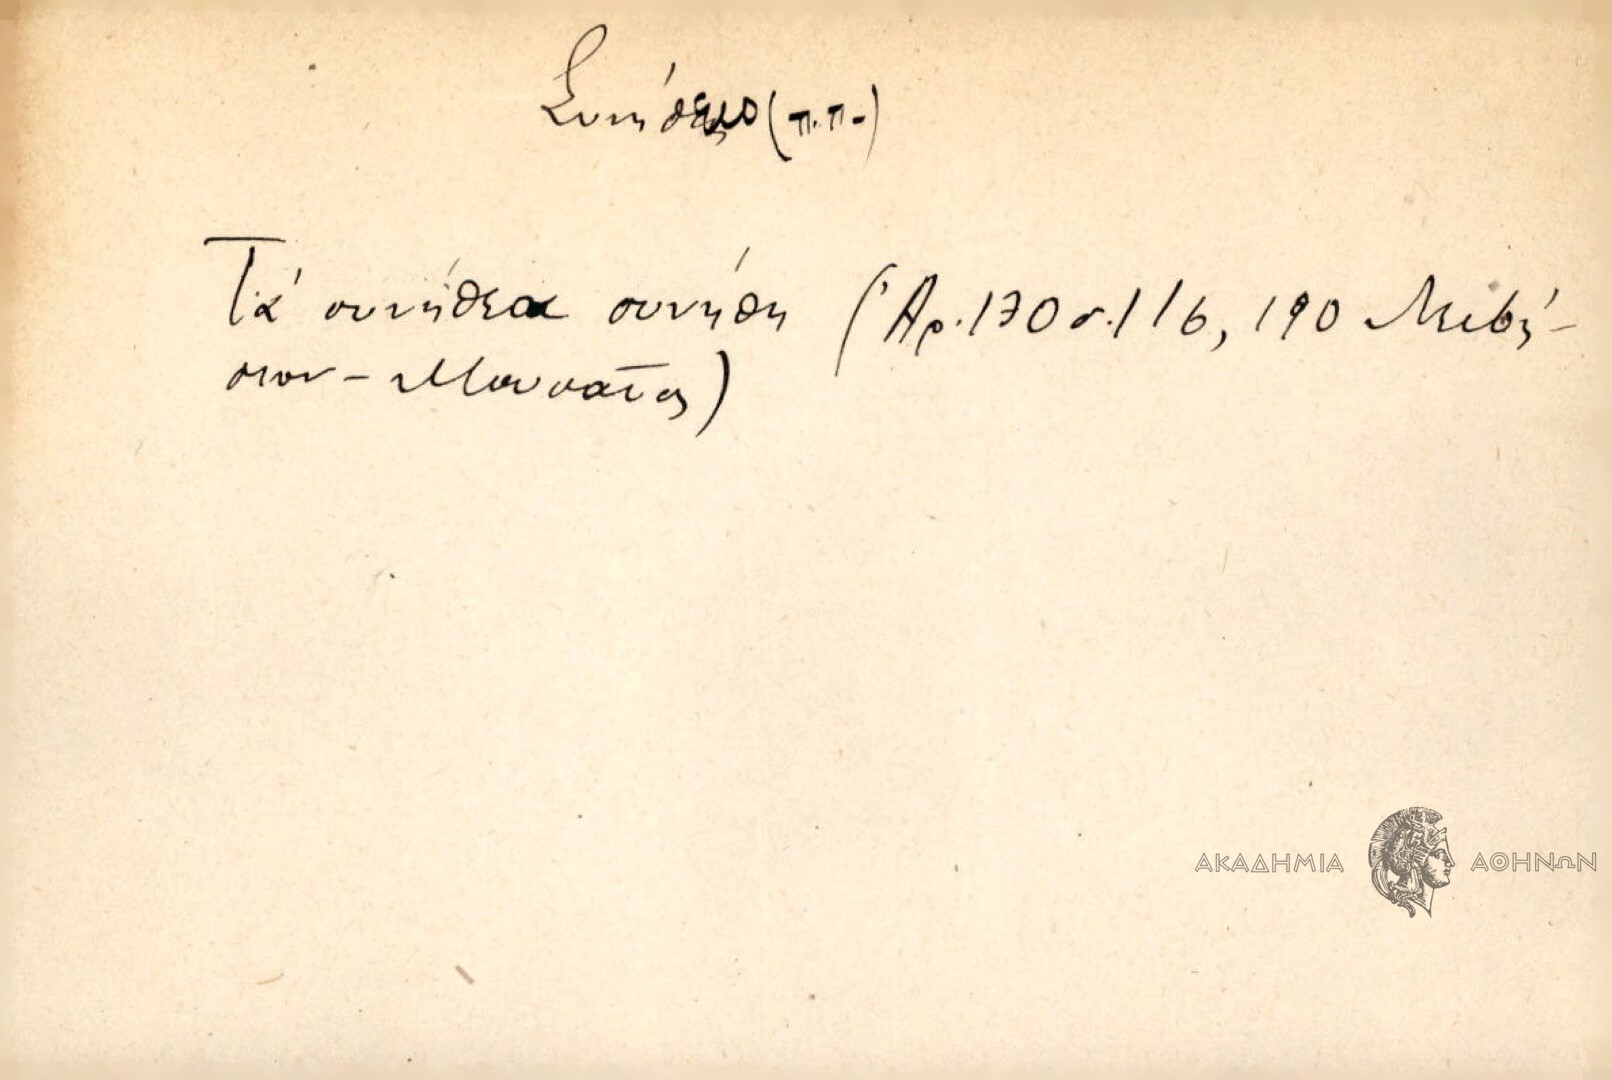 Συνήθειο (π.π.)
Τά συνήθεια συνήθη (Ἀρ. 130 σ. 116, 190 Λειβή-
σιον - Μουσαῖος)
ΑΚΑΔΗΜΙΑ ΑΘΗΝΩΝ